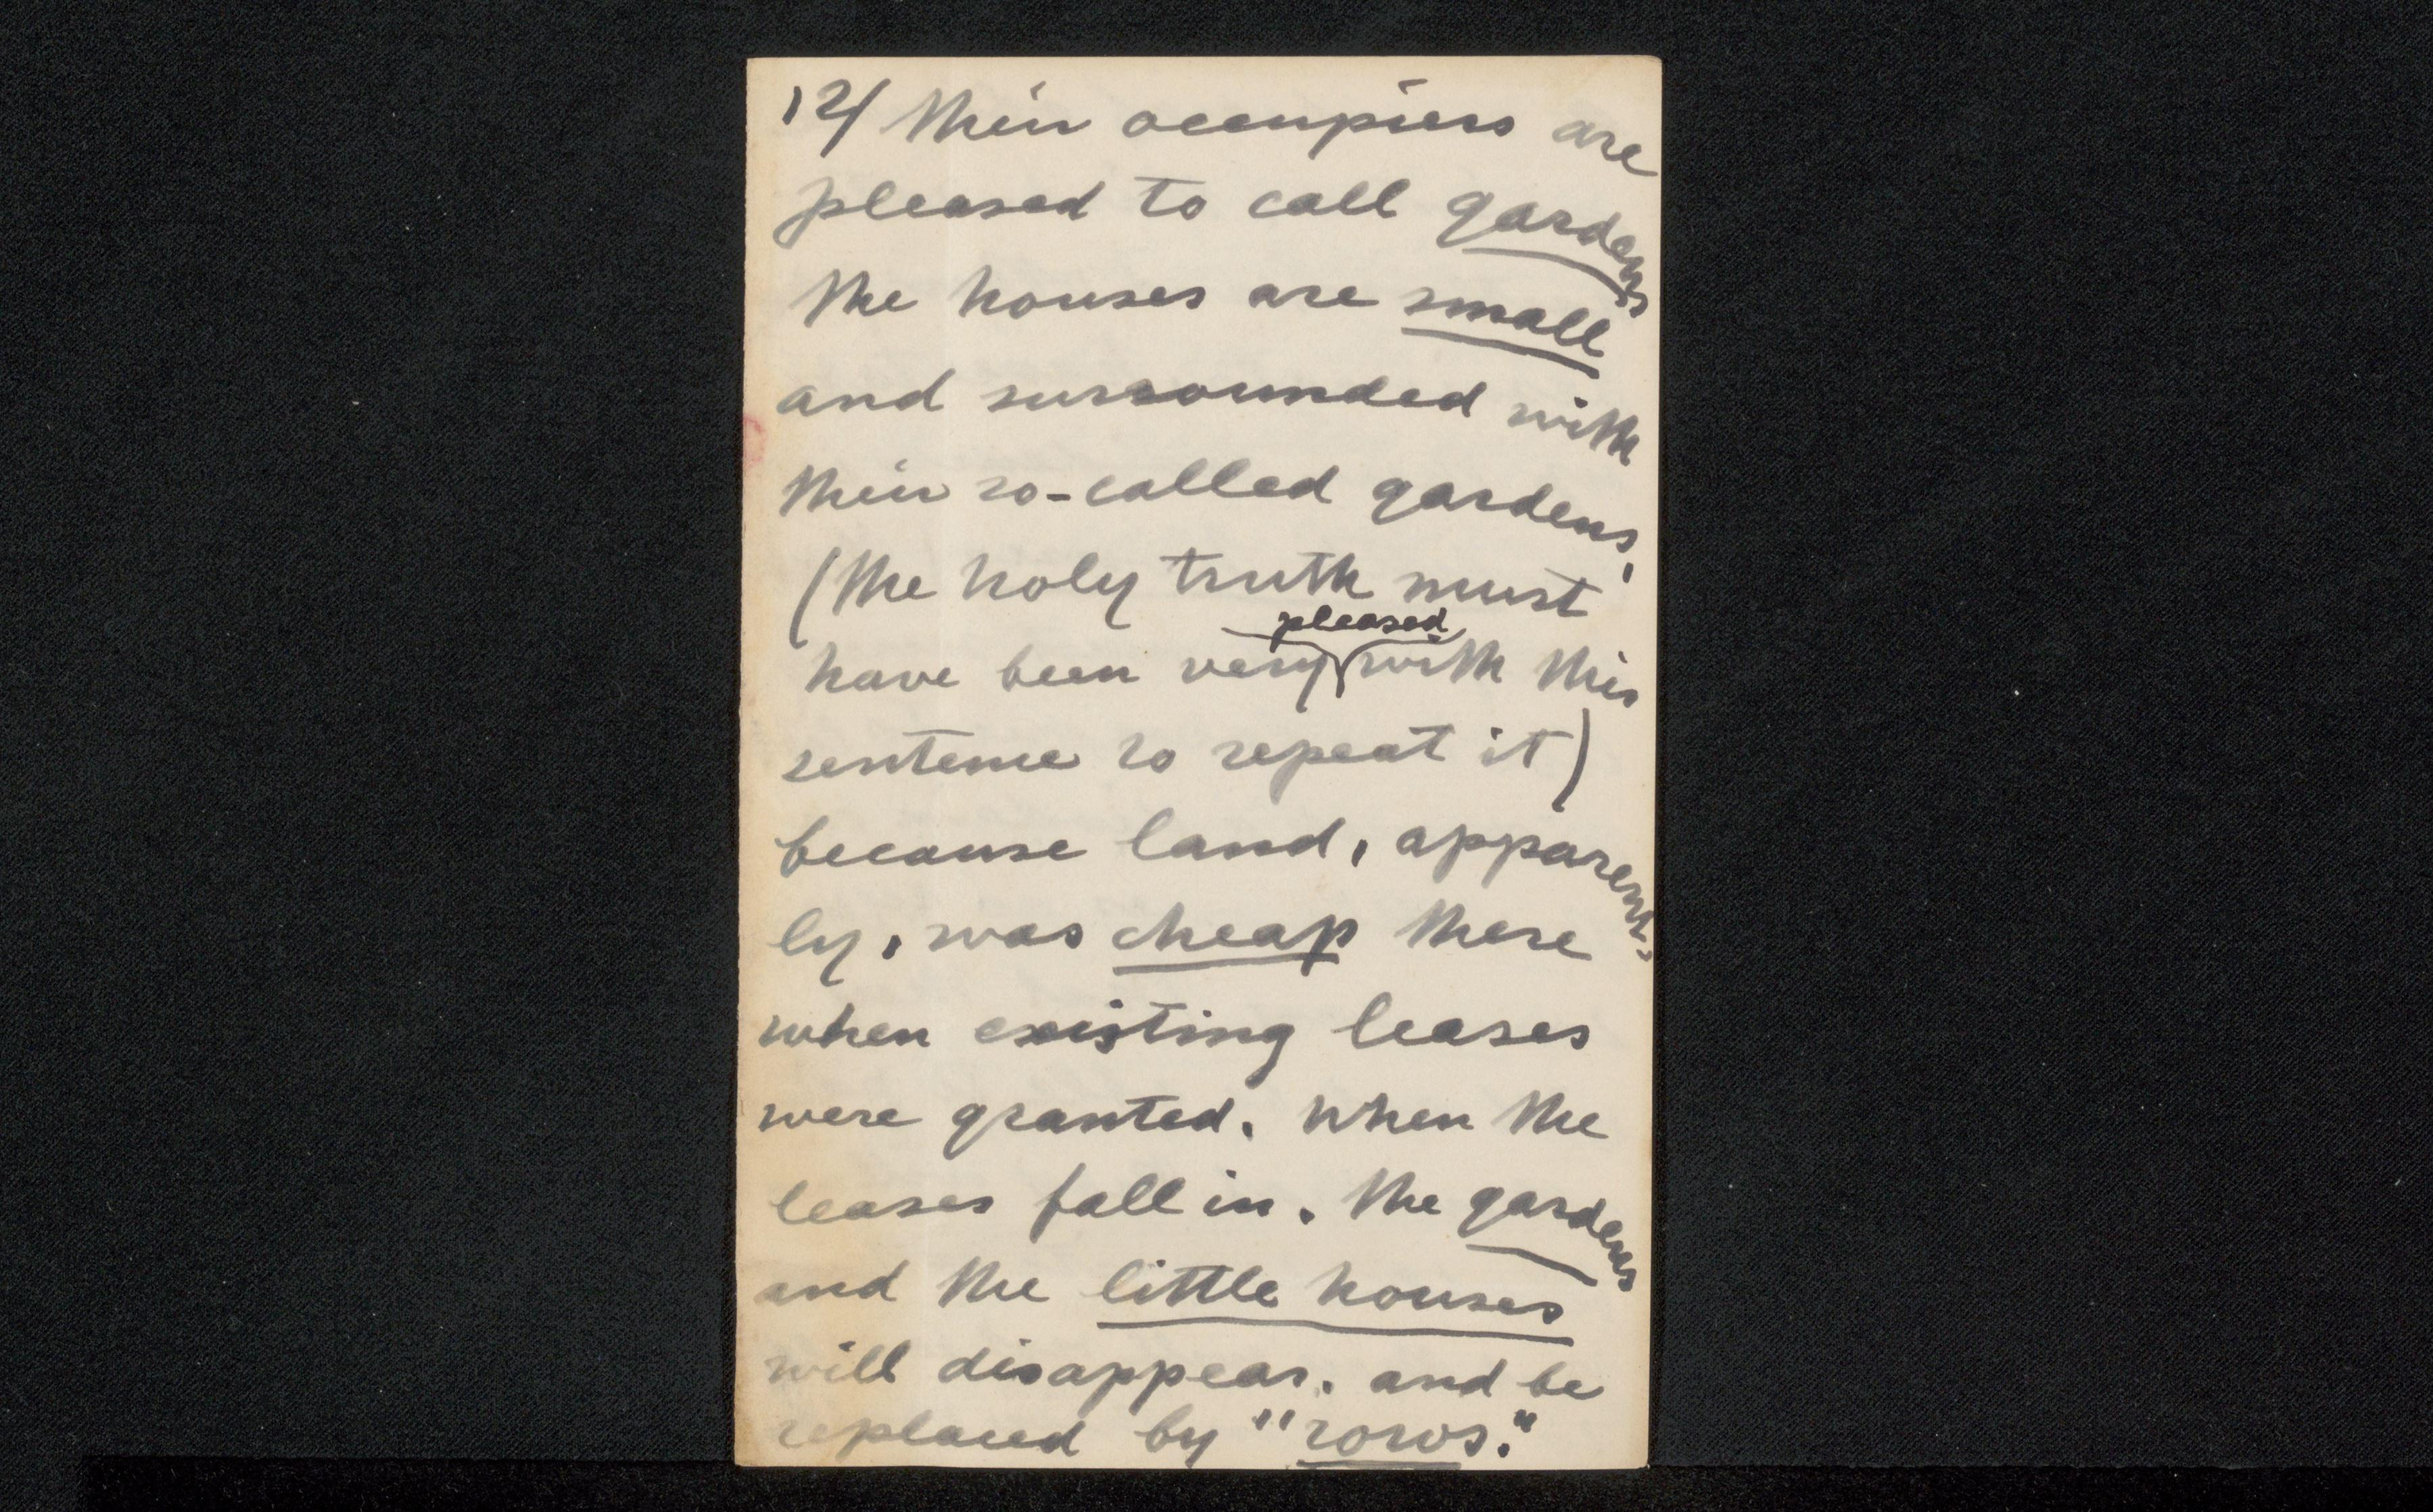 12/ Their occupiers are
pleased to call gardens
The houses are small
and surrounded with
their so-called gardens,
(the holy truth must
have been very pleased with this
sentence so repeat it)
because land, apparent-
ly, was cheap there
when existing leases
were granted. When the
leases fall in. the gardens
and the little houses
will disappear. and be
replaced by "rows."